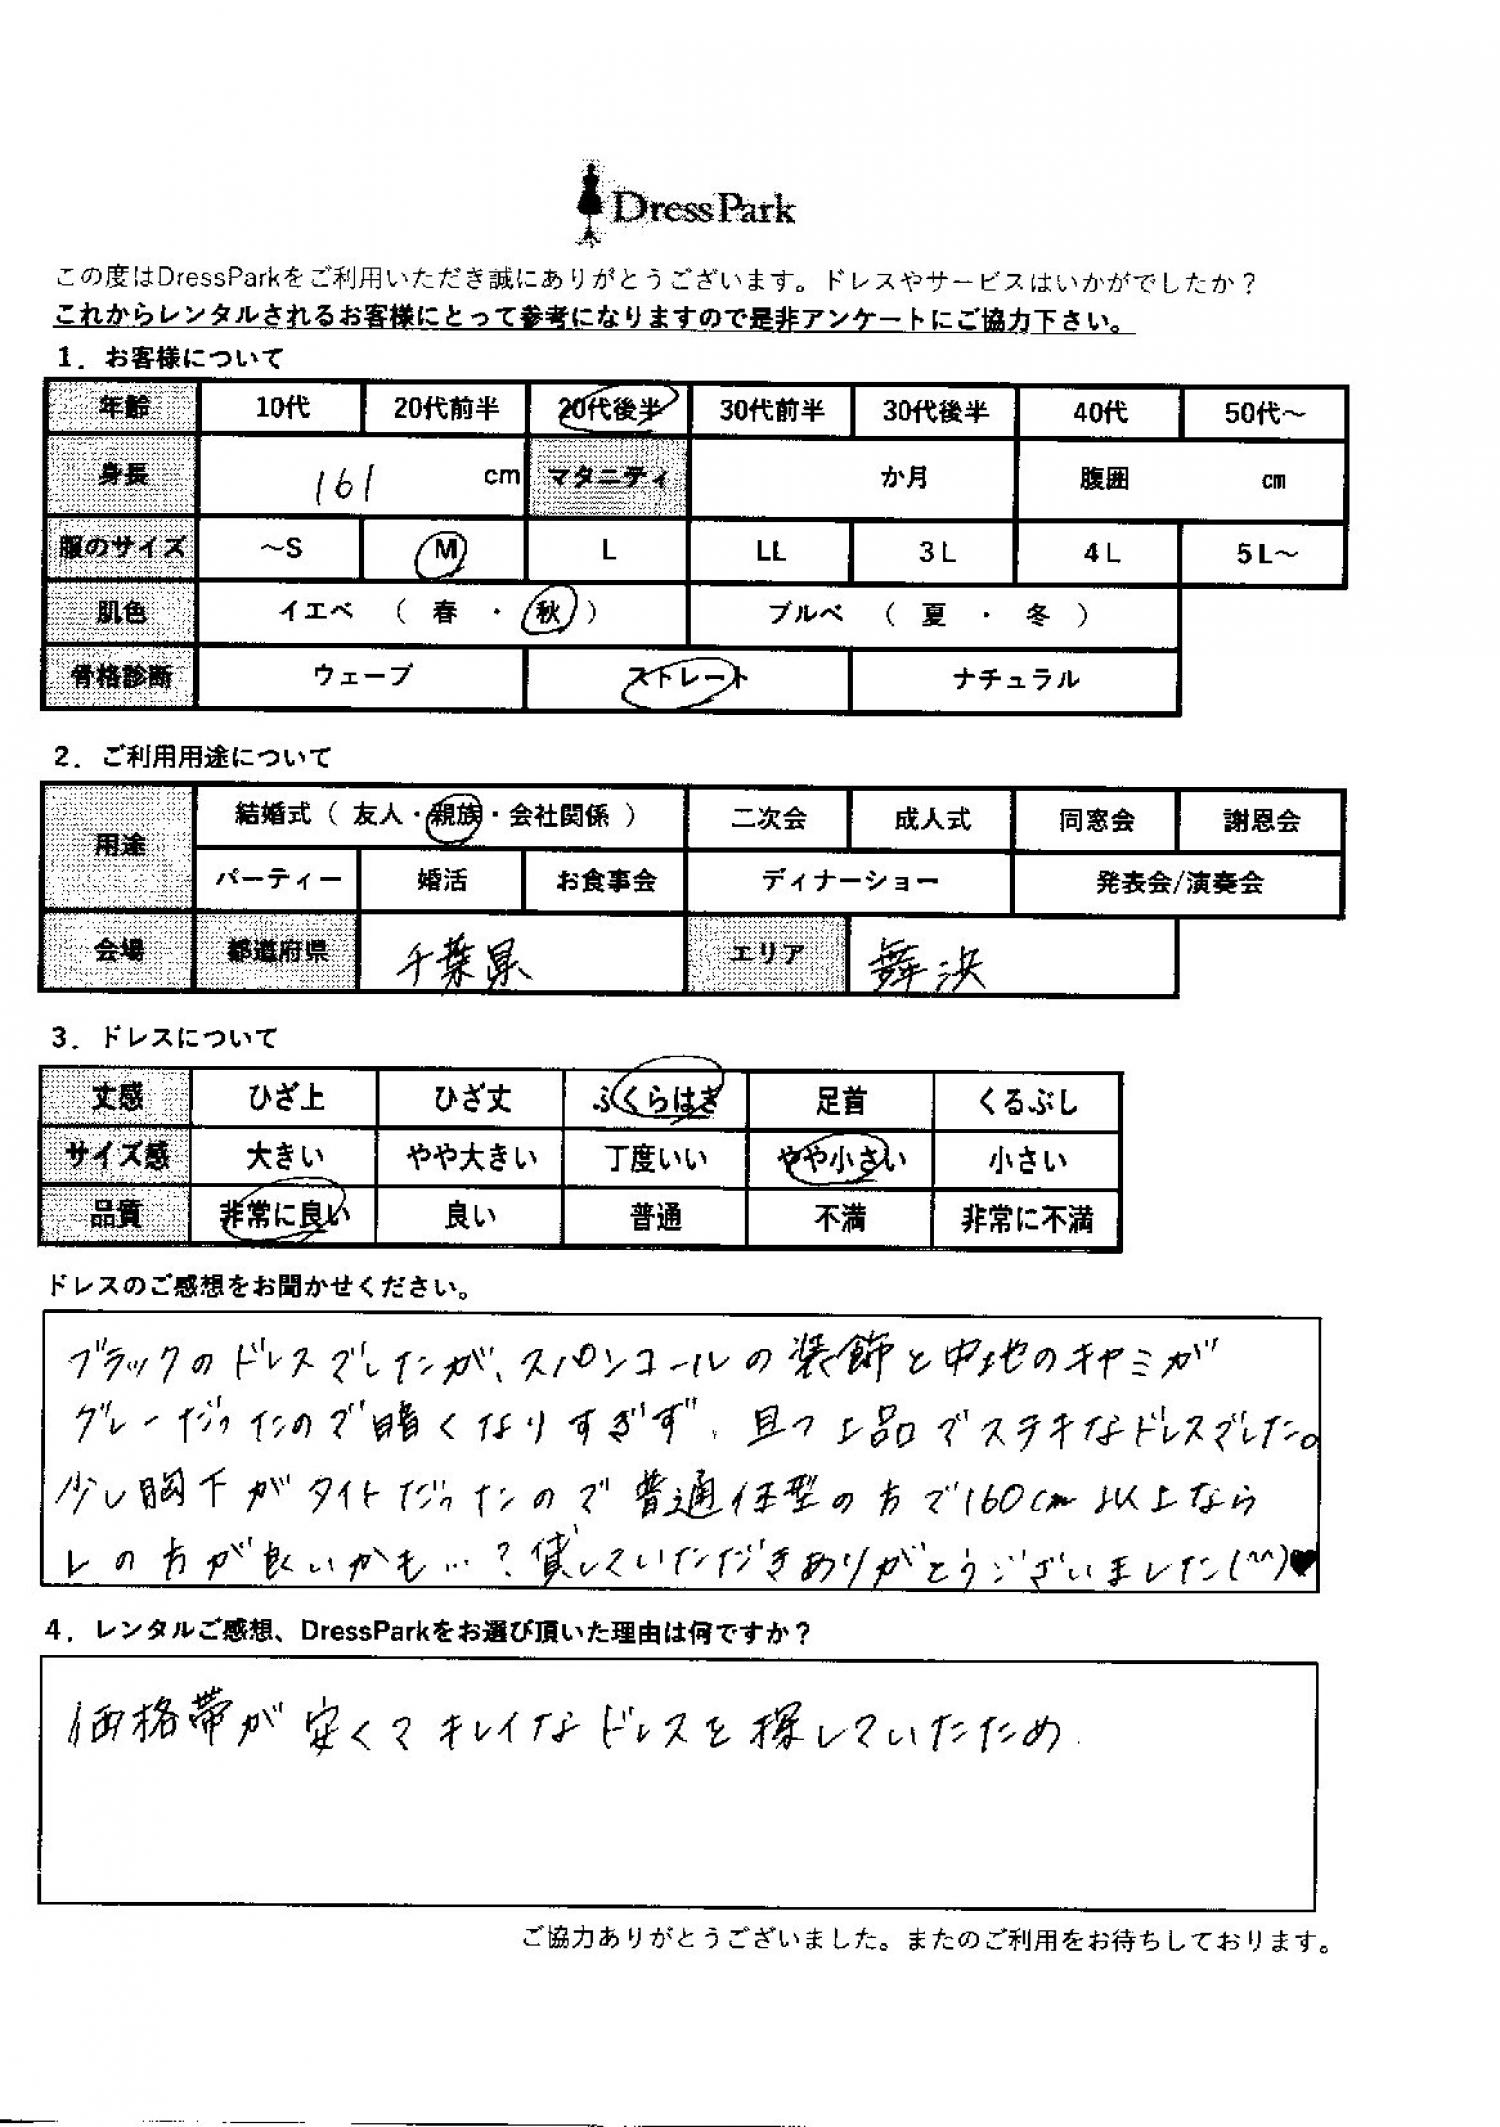 DressPark
この度はDressParkをご利用いただき誠にありがとうございます。ドレスやサービスはいかがでしたか？
これからレンタルされるお客様にとって参考になりますので是非アンケートにご協力下さい。
1．お客様について
年齢 10代 20代前半 20代後半 30代前半 30代後半 40代 50代～
身長 161 cm マタニティ か月 腹囲 cm
服のサイズ ～S M L LL 3L 4L 5L～
肌色 イエベ （ 春 ・ 秋 ） ブルベ （ 夏 ・ 冬 ）
骨格診断 ウェーブ ストレート ナチュラル
2．ご利用用途について
用途 結婚式（ 友人・親族・会社関係 ） 二次会 成人式 同窓会 謝恩会
パーティー 婚活 お食事会 ディナーショー 発表会/演奏会
会場 都道府県 千葉県 エリア 舞浜
3．ドレスについて
丈感 ひざ上 ひざ丈 ふくらはぎ 足首 くるぶし
サイズ感 大きい やや大きい 丁度いい やや小さい 小さい
品質 非常に良い 良い 普通 不満 非常に不満
ドレスのご感想をお聞かせください。
ブラックのドレスでしたが、スパンコールの装飾と中地のキャミが
グレーだったので暗くなりすぎず、且つ上品でステキなドレスでした。
少し胸下がタイトだったので普通体型の方で160cm以上なら
Lの方が良いかも…？貸していただきありがとうございました(^^)♥
4．レンタルご感想、DressParkをお選び頂いた理由は何ですか？
価格帯が安くてキレイなドレスを探していたため
ご協力ありがとうございました。またのご利用をお待ちしております。